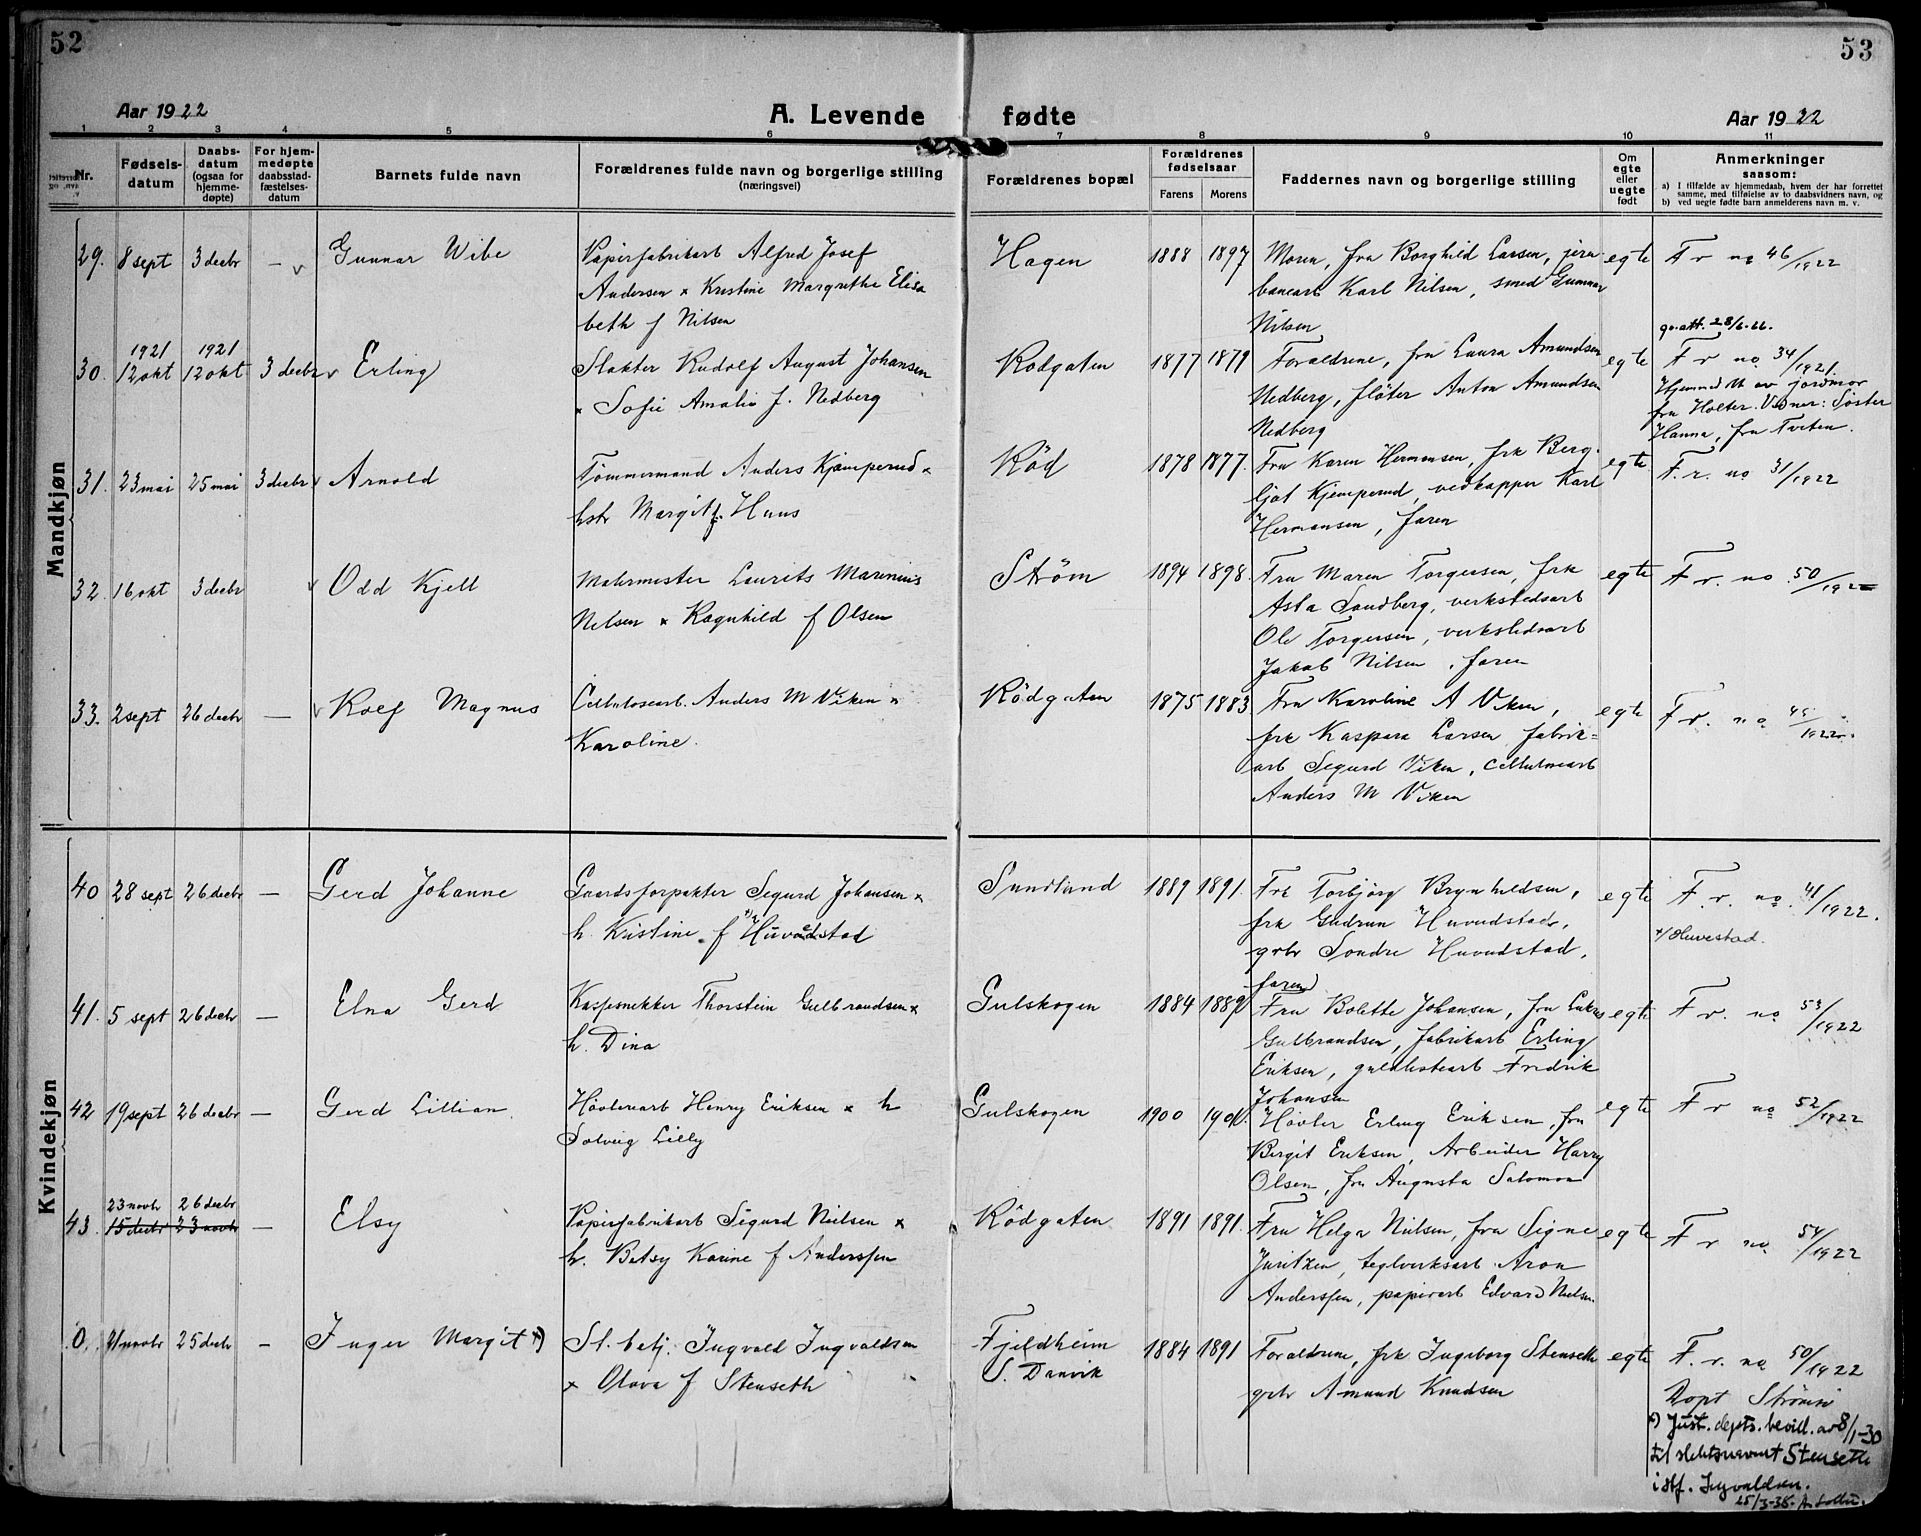 52
53
Aar 1922
A. Levende fødte
Aar 1922
1 2 3 4 5 6 7 8 9 10 11
Nr.
Fødselsdatum
Daabsdatum (ogsaa for hjemmedøpte)
For hjemmedøpte daabsstadfæstelsesdatum
Barnets fulde navn
Forældrenes fulde navn og borgerlige stilling
(næringsvei)
Forældrenes bopæl
Forældrenes fødselsaar
Farens Morens
Faddernes navn og borgerlige stilling
Om egte eller uegte født
Anmerkninger
saasom:
a) I tilfælde av hjemmedaab, hvem der har forrettet samme, med tilføielse av to daabsvidners navn, og
b) ved uegte fødte barn anmelderens navn m. v.
Mandkjøn
29. 8 sept 3 decbr — v Gunnar Wibe
Papirfabrikarb Alfred Josef
Andersen x Kristine Margrethe Elisa
beth f Nilsen
Hagen 1888 1897
Moren, fru Borghild Larsen, jern
banearb Karl Nilsen, smed Gunnar
Nilsen
egte F r no 46/1922
30. 1921 12 okt 1921 12 okt 3 decbr v Erling
Slakter Rudolf August Johansen
x Sofie Amalie f. Nedberg
Rødgaten 1877 1879
Foraldrene, fru Laura Amundsen
Nedberg, fløter Anton Amundsen
Nedberg
egte
F r no 34/1921.
Hjemmed av jordmor
fru Holter. Vidner: Søster
Hanna, fru Tveten.
31. 23 mai 25 mai 3 decbr v Arnold
Tømmermand Anders Kjemperud x
hstr Margit f. Huus
Rød 1878 1877.
Fru Karen Hermansen, frk Berg
ljot Kjemperud, vedkapper Karl
Hermansen, faren
egte F. r. no 31/1922
32. 16 okt 3 decbr v Odd Kjell
Malermester Laurits Marinius
Nilsen x Ragnhild f Olsen
Strøm 1894 1898.
Fru Maren Torgersen, frk
Asta Sandberg, verkstedsarb
Ole Torgersen, verkstedsarb
Jakob Nilsen, faren
egte F r. no 50/1922
33. 2 sept 26 decbr — v Rolf Magnus
Cellulosearb. Anders M Viken x
Karoline.
Rødgaten 1875 1883
Fru Karoline A Viken,
frk Kaspara Larsen fabrik=
arb Segurd Viken, cellulosearb
Anders M Viken
egte F r. no 45/1922.
Kvindekjøn
40 28 sept 26 decbr — Gerd Johanne
Gaardsforpakter Segurd Johansen x
h. Kristine f x) Huvudstad
Sundland 1889 1891.
Frk Torbjørg Brynhildsen,
frk Gudrun Huvudstad,
grbr Sondre Huvudstad,
faren
egte F. r. no. 41/1922.
x/ Huvestad.
41. 5 sept 26 decbr — Elna Gerd
Kassesnekker Thorstein Gulbrandsen x
h. Dina
Gulskogen 1884 1889
Fru Bolette Johansen, fru
Gulbrandsen, fabrikarb Erling
Eriksen, Fredrik
Johansen
egte F r. no 53/1922
42 19 sept 26 decbr — Gerd Lillian
Høvleriarb Henry Eriksen x h
Solveig Lilly
Gulskogen 1900 1901.
Høvler Erling Eriksen, fru
Birgit Eriksen, Arbeider Harry
Olsen, fru Augusta Salomon
egte F r no 52/1922
43. 23 novbr 26 decbr
15 decbr 23 novbr — Elsy
Papirfabrikarb Sigurd Nielsen x
h. Betsy Karine f Anderssen
Rødgaten 1891 1891.
Fru Helga Nielsen, fru Signe
Juritzen, teglverksarb Aron
Anderssen, papirarb Edvard Nielsen
egte F r no. 54/1922
0. 21 novbr 25 decbr — Inger Margit x)
St. betj. Ingvald Ingvaldsen
x Olava f Stenseth
Fjeldheim
S. Danvik
1884 1891
Foraldrene, frk Ingeborg Stenseth
grbr Amund Knudsen
egte F. r. no 50/1922
Døpt Strømsø
x) Just. depts. bevill. av 8/1-30
til slektsnavnet Stenseth
istf. Ingvaldsen.
25/3-38.